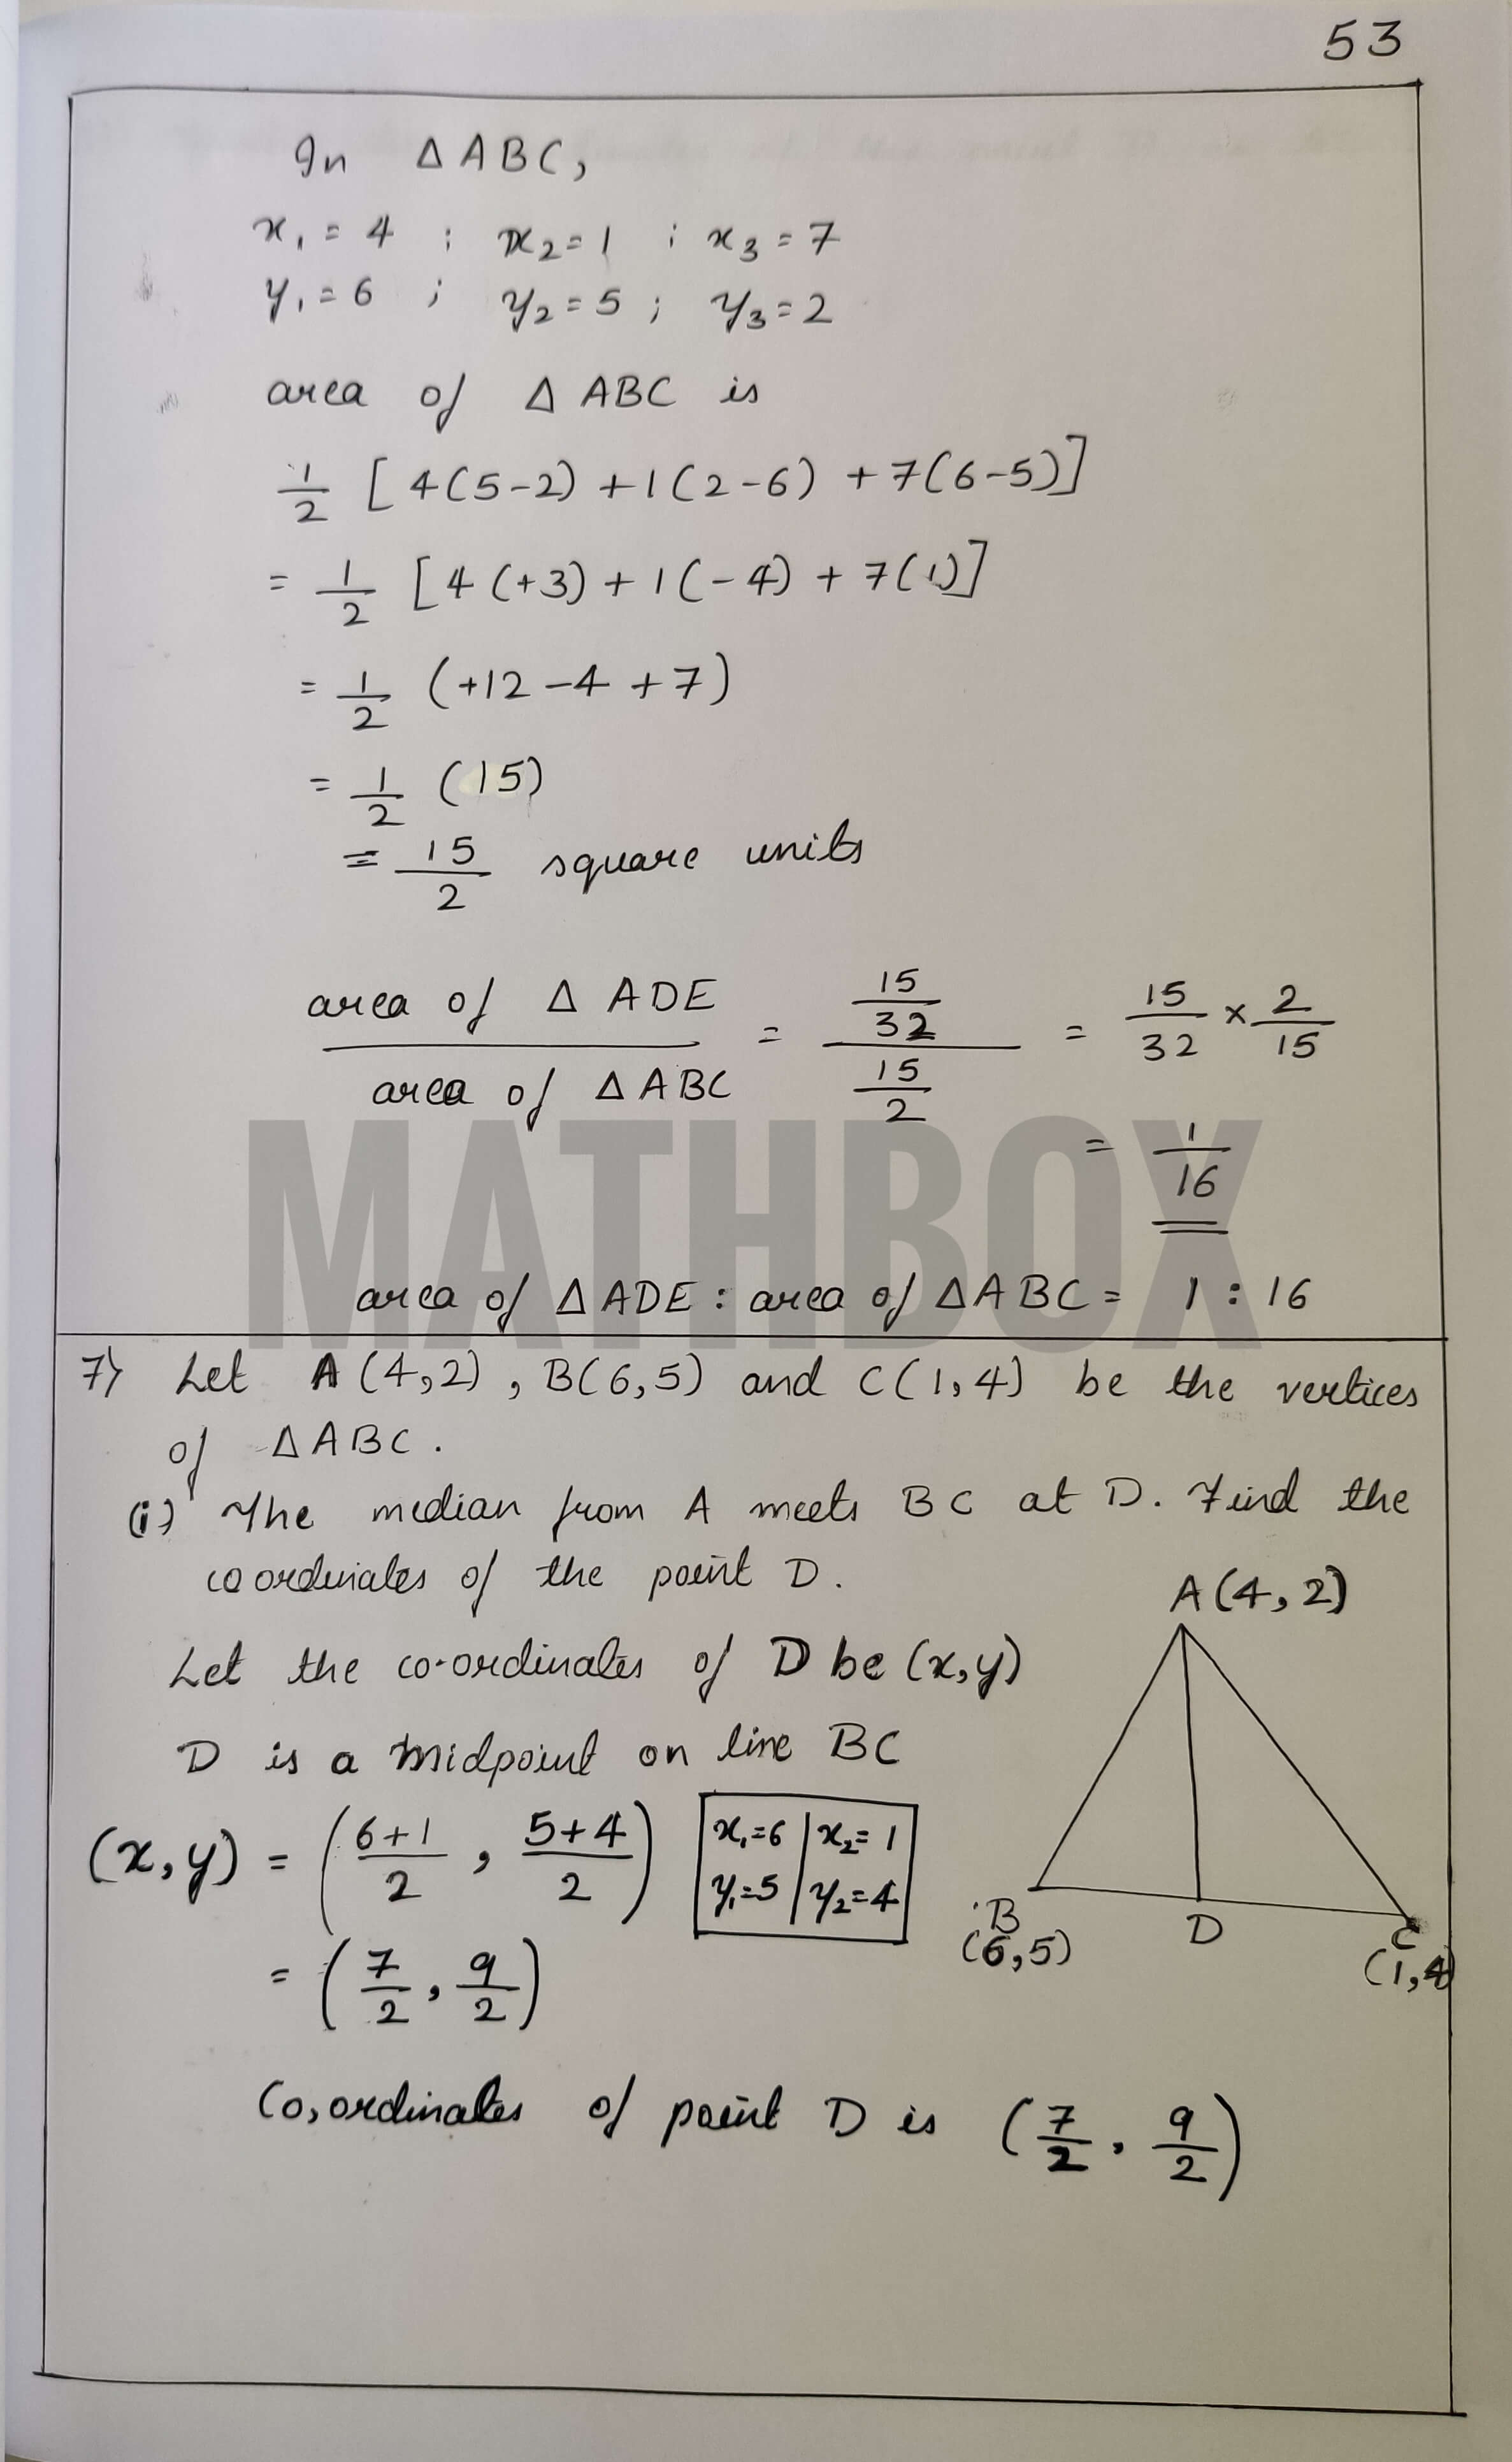 53
In △ ABC,
x₁ = 4 ; x₂ = 1 ; x₃ = 7
y₁ = 6 ; y₂ = 5 ; y₃ = 2
area of △ ABC is
1/2 [4(5-2) +1(2-6) +7(6-5)]
= 1/2 [4(+3) + 1(-4) + 7(1)]
= 1/2 (+12 -4 +7)
= 1/2 (15)
= 15/2 square units
area of △ ADE / area of △ ABC = (15/32) / (15/2) = 15/32 × 2/15
= 1/16
MATHBOX
area of △ ADE : area of △ ABC = 1 : 16
7) Let A (4,2) , B(6,5) and C(1,4) be the vertices
of △ ABC.
(i) The median from A meets BC at D. Find the
coordinates of the point D.
A (4, 2)
Let the co-ordinates of D be (x,y)
D is a midpoint on line BC
(x,y) = (6+1/2 , 5+4/2)
x₁=6 | x₂=1
y₁=5 | y₂=4
B
(6,5)
D
C
(1,4)
= (7/2 , 9/2)
Co,ordinates of point D is (7/2 , 9/2)